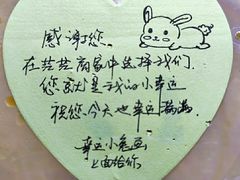 感谢您
在茫茫商家中选择我们.
您就是我的小幸运
祝您今天也幸运满满
幸运小兔画
上面给你